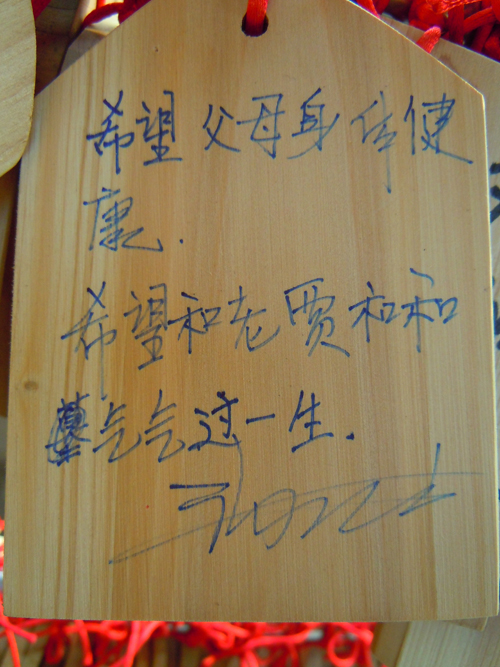 希望父母身体健
康.
希望和老贾和和
气气过一生.